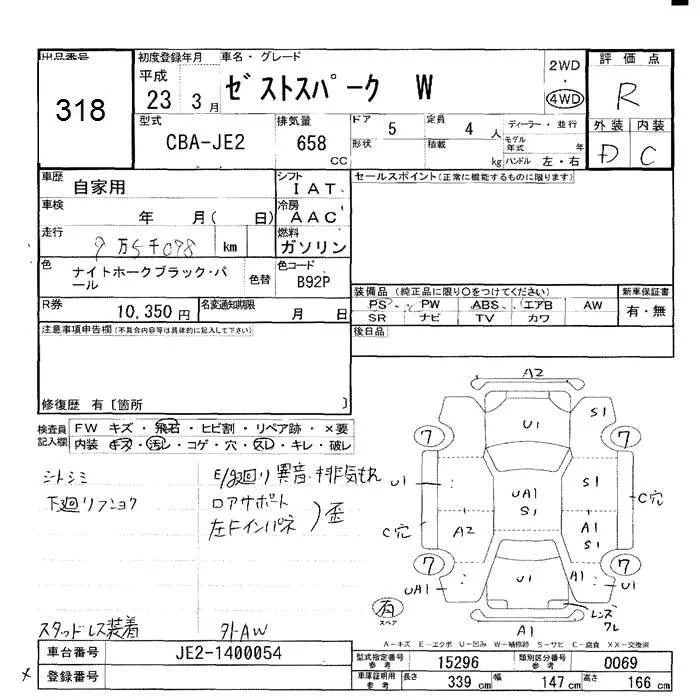 出品番号
318
初度登録年月
平成
23 3 月
車名・グレード
ゼストスパーク W
2WD
・
4WD
評価点
R
型式
CBA-JE2
排気量
658
CC
ドア 5
定員 4 人
形状
積載 kg
ディーラー・並行
モデル年式 年
ハンドル 左・右
外装 内装
D C
車歴
自家用
シフト
IAT
車検
年 月( 日)
冷房
AAC
走行
9万5千078 km
燃料
ガソリン
色
ナイトホークブラック・パール
色替
色コード
B92P
R券
10,350 円
名変通知期限
月 日
セールスポイント(正常に機能するものに限ります)
装備品(純正品に限り○をつけてください)
新車保証書
PS PW ABS エアB AW
SR ナビ TV カワ
有・無
後日品
注意事項申告欄(不具合内容等は具体的に記入して下さい)
修復歴 有〔箇所 〕
検査員記入欄
FW キズ・飛石・ヒビ割・リペア跡・×要
内装 キズ・汚レ・コゲ・穴・スレ・キレ・破レ
シートシミ
下廻りフショク
E/g廻り異音・排気もれ
ロアサポート
左Fインパネ
)歪
スタッドレス装着
外AW
A2
U1
S1
7
7
U1
UA1
S1
S1
C穴
C穴
A2
A1
S1
7
7
UA1
U1
A1
U1
有
スペア
レンズワレ
A1
A-キズ E-エクボ U-凹み W-補修跡 S-サビ C-腐食 XX-交換済
車台番号 JE2-1400054
× 登録番号
型式指定番号 参考 15296
類別区分番号 参考 0069
車庫証明用 参考 長さ 339 cm 幅 147 cm 高さ 166 cm